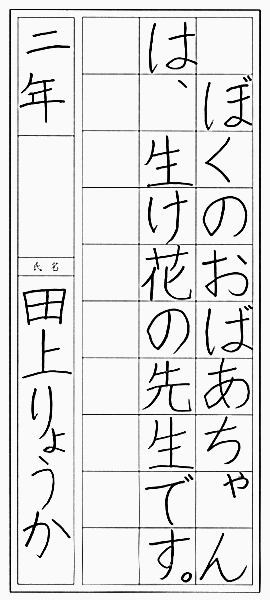 ぼくのおばあちゃん
は、生け花の先生です。
二年
氏名
田上りょうか